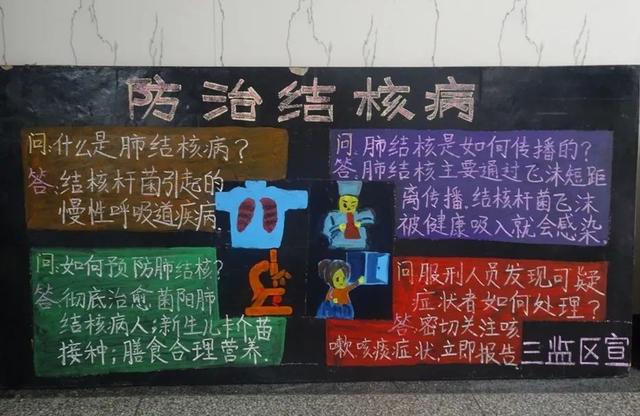 防治结核病
问:什么是肺结核病？
答:结核杆菌引起的
慢性呼吸道疾病
问:肺结核是如何传播的?
答:肺结核主要通过飞沫短距
离传播.结核杆菌飞沫
被健康吸入就会感染
问:如何预防肺结核?
答:彻底治愈菌阳肺
结核病人;新生儿卡介苗
接种;膳食合理营养
问服刑人员发现可疑
症状者如何处理?
答:密切关注咳
嗽.咳痰症状.立即报告
三监区宣